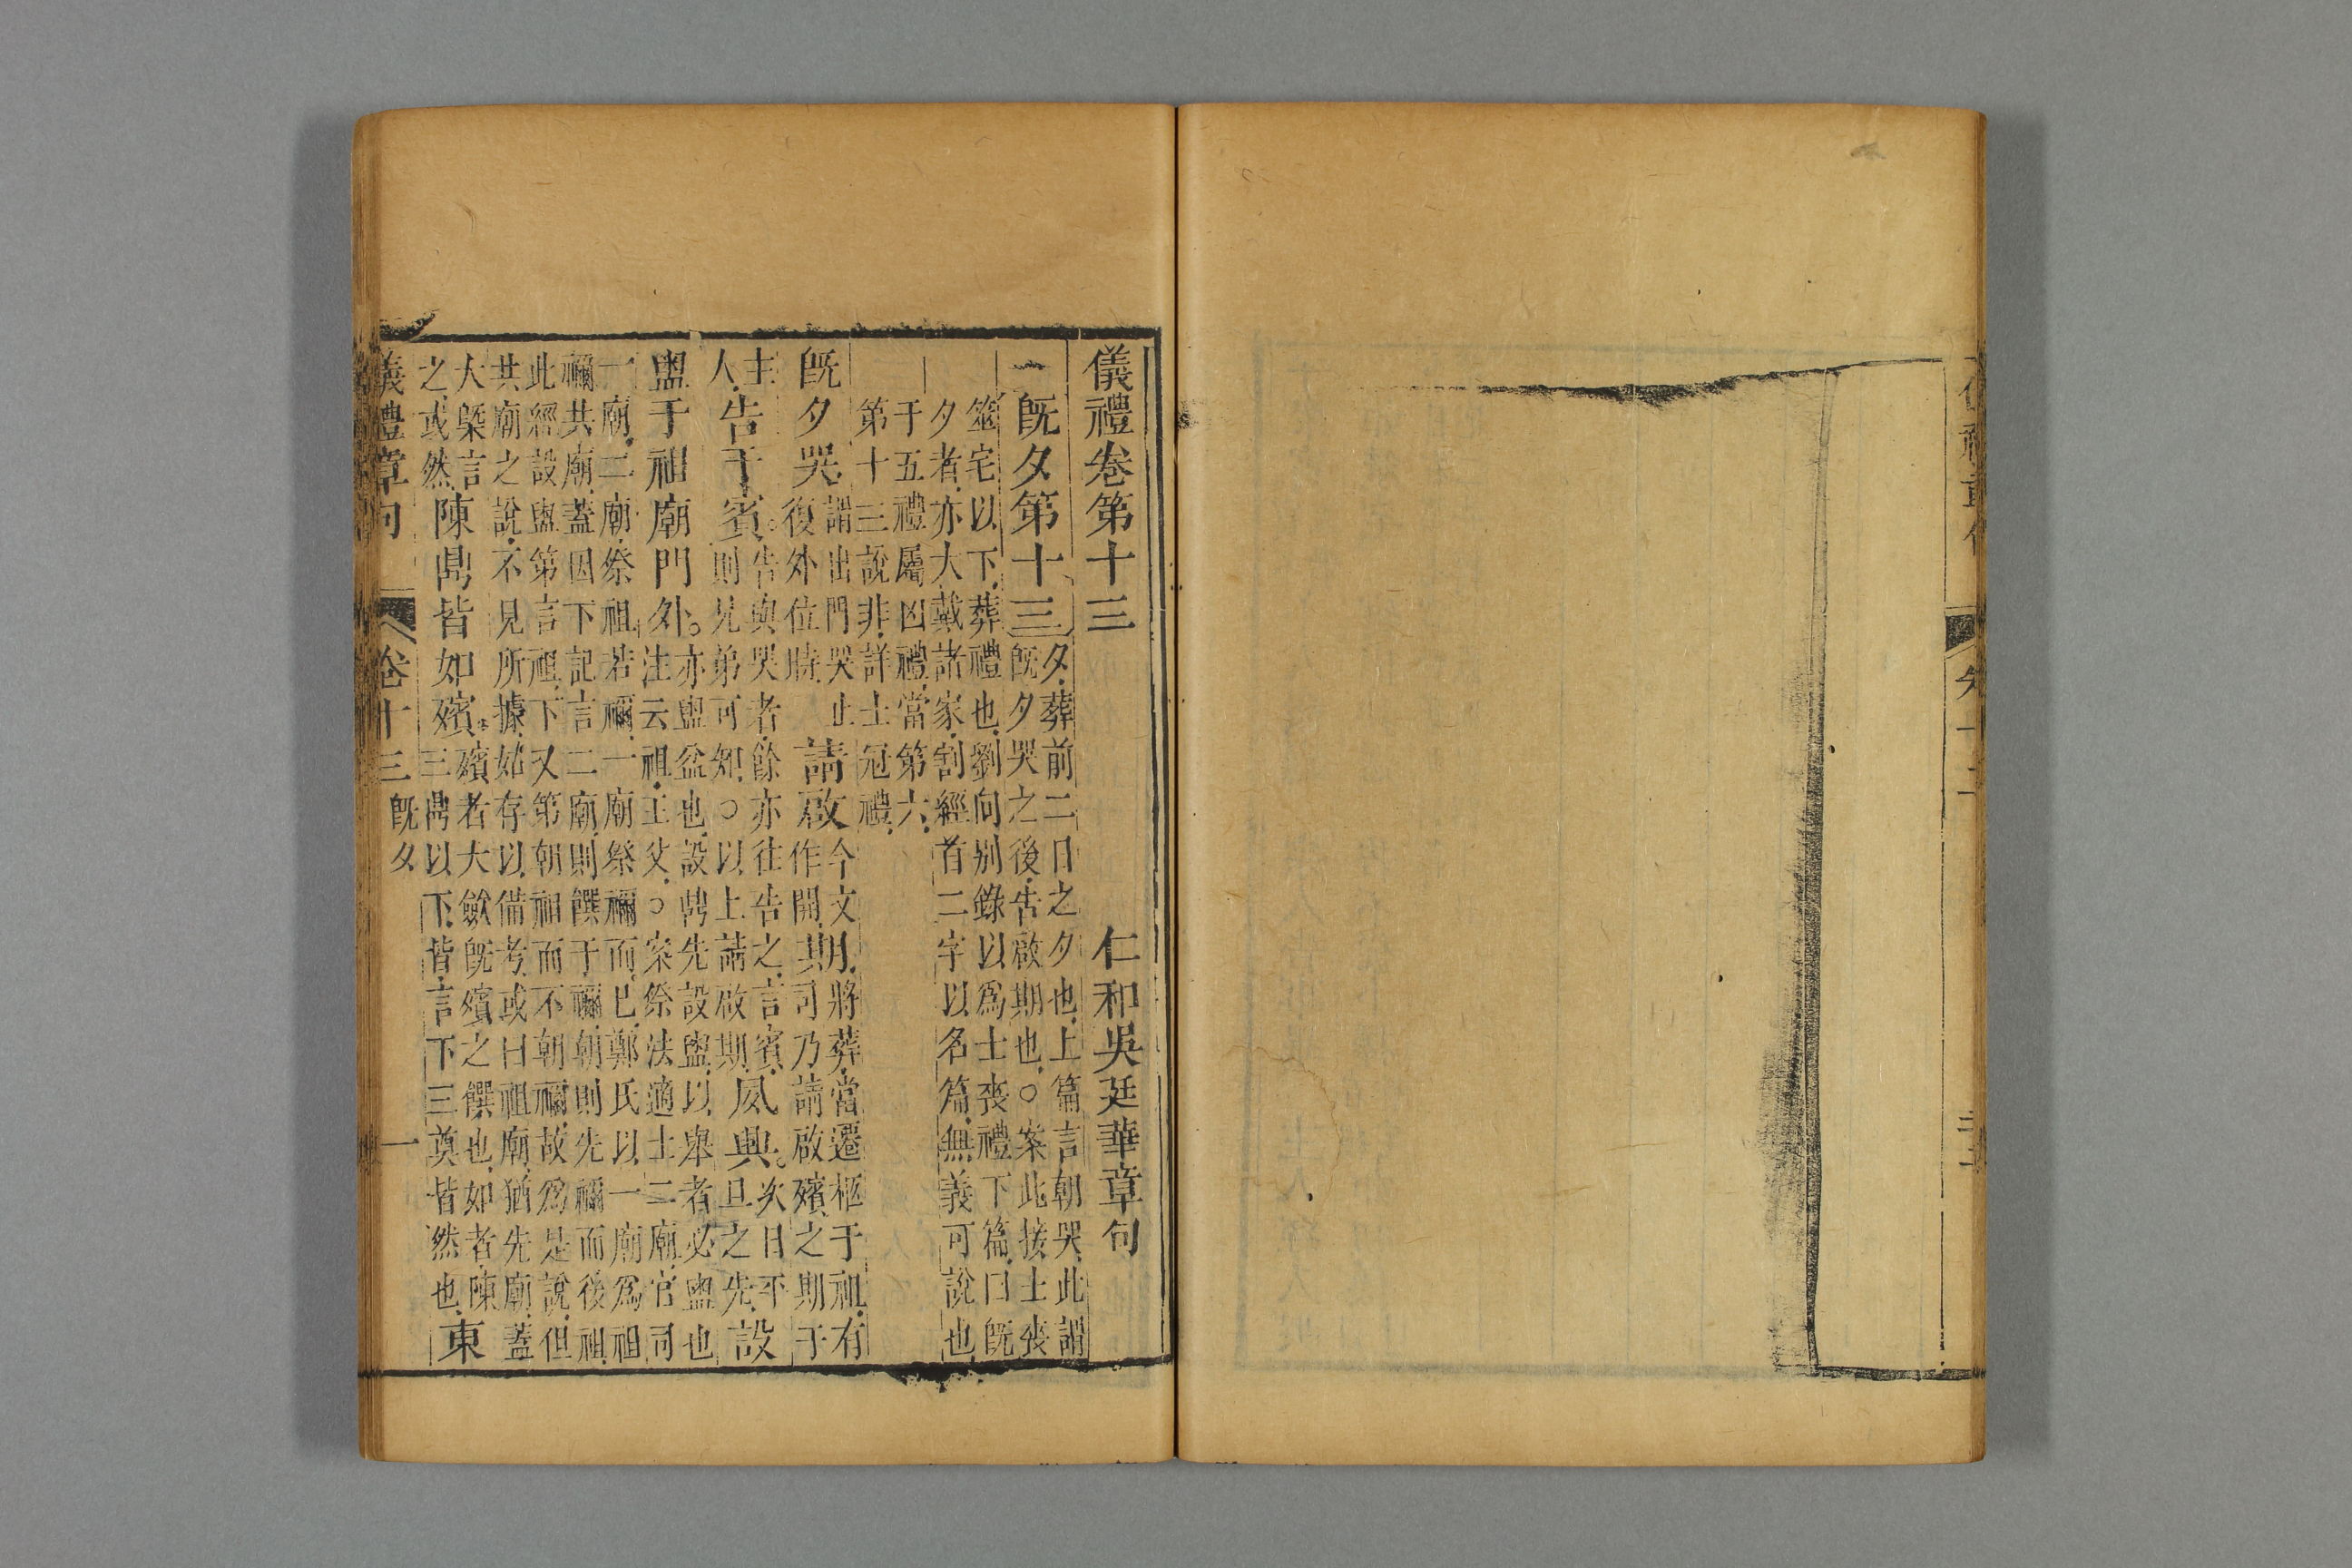 儀禮卷第十三
仁和吳廷華章句
既夕第十三
夕葬前二日之夕也上篇言朝哭此謂
既夕哭之後告啟期也○案此接士喪
筮宅以下葬禮也劉向别錄以爲士喪禮下篇曰既
夕者亦大戴諸家割經首二字以名篇無義可說也
于五禮屬凶禮當第六
第十三說非詳士冠禮
既夕哭
謂出門哭止
復外位時
請啟
今文
作開
期
將葬當遷柩于祖有
司乃請啟殯之期于
主
人
告于賓
告與哭者餘亦往告之言賓
則兄弟可知○以上請啟期
夙興
次日平
旦之先
設
盥于祖廟門外
亦盥盆也設鼎先設盥以舉者必盥也
注云祖王父○案祭法適士二廟官司
一廟二廟祭祖若禰一廟祭禰而已鄭氏以一廟爲祖
禰共廟蓋因下記言二廟則饌于禰朝則先禰而後祖
此經設盥第言祖下又第朝祖而不朝禰故爲是說但
共廟之說不見所據姑存以備考或曰祖廟猶先廟蓋
大槩言
之或然
陳鼎皆如殯
殯者大斂既殯之饌也如者陳
三鼎以下皆言下三奠皆然也
東
儀禮章句
卷十三
既夕
一